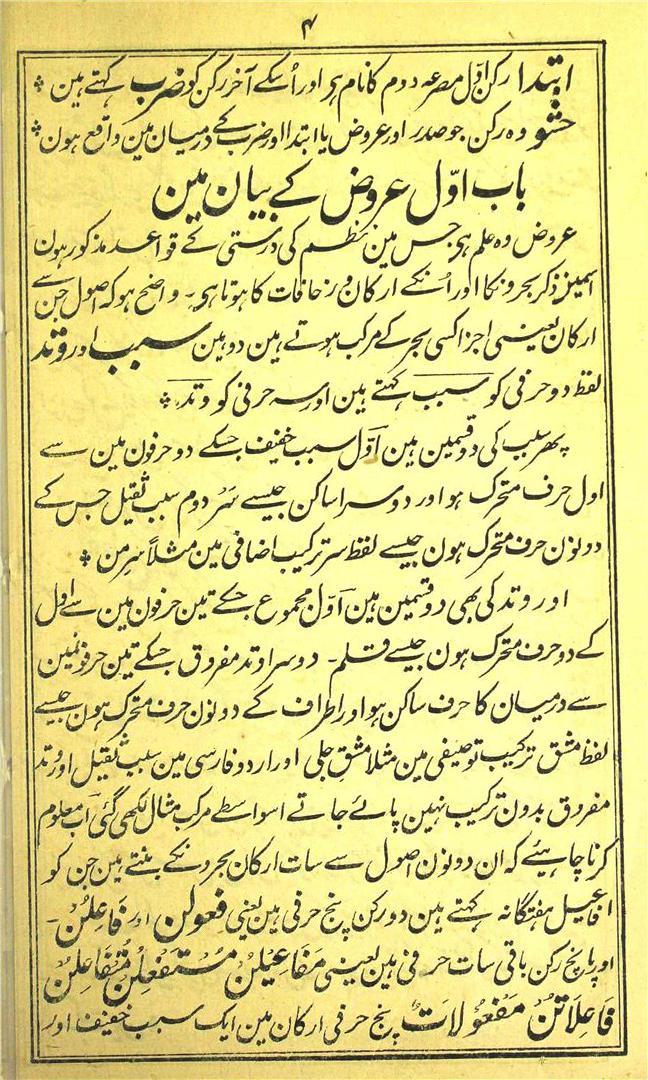 ۴
ابتدا رکن اوّل مصرعہ دوم کا نام ہی اور اُسکے آخر رکن کو ضرب کہتے ہین
حشو وہ رکن جو صدر اور عروض یا ابتدا اور ضرب کے درمیان مین واقع ہون
باب اوّل عروض کے بیان مین
عروض وہ علم ہی جس مین نظم کی درستی کے قواعد مذکور ہون
اسمین ذکر بحرونکا اور اُنکے ارکان و زحافات کا ہوتا ہی ۔ واضح ہو کہ اصول جن سے
ارکان یعنی اجزا کسی بحر کے مرکب ہوتے ہین دو ہین سبب اور وتد
لفظ دو حرفی کو سبب کہتے ہین اور سہ حرفی کو وتد
پھر سبب کی دو قسمین ہین اوّل سبب خفیف جسکے دو حرفون مین سے
اول حرف متحرک ہو اور دوسرا ساکن جیسے سَر دوم سبب ثقیل جس کے
دونون حرف متحرک ہون جیسے لفظ سر ترکیب اضافی مین مثلاً سرِ من
اور وتد کی بھی دو قسمین ہین اوّل مجموع جسکے تین حرفون مین سے اول
کے دو حرف متحرک ہون جیسے قلم ۔ دوسرا وتد مفروق جسکے تین حرفونمین
سے درمیان کا حرف ساکن ہو اور اطراف کے دونون حرف متحرک ہون جیسے
لفظ مشق ترکیب توصیفی مین مثلا مشقِ جلی اور اردو فارسی مین سبب ثقیل اور وتد
مفروق بدون ترکیب نہین پائے جاتے اسواسطے مرکب مثال لکھی گئی اب معلوم
کرنا چاہیئے کہ ان دونون اصول سے سات ارکان بحرونکے بنتے ہین جن کو
افاعیل ہفتگانہ کہتے ہین دو رکن پنج حرفی ہین یعنی فعولن اور فاعلن ۔
اور پانچ رکن باقی سات حرفی ہین یعنی مَفَاعیلن مُستفعلن مُتفاعلن
فَاعِلَاتُن مَفعُولَاتُ پنج حرفی ارکان مین ایک سبب خفیف اور